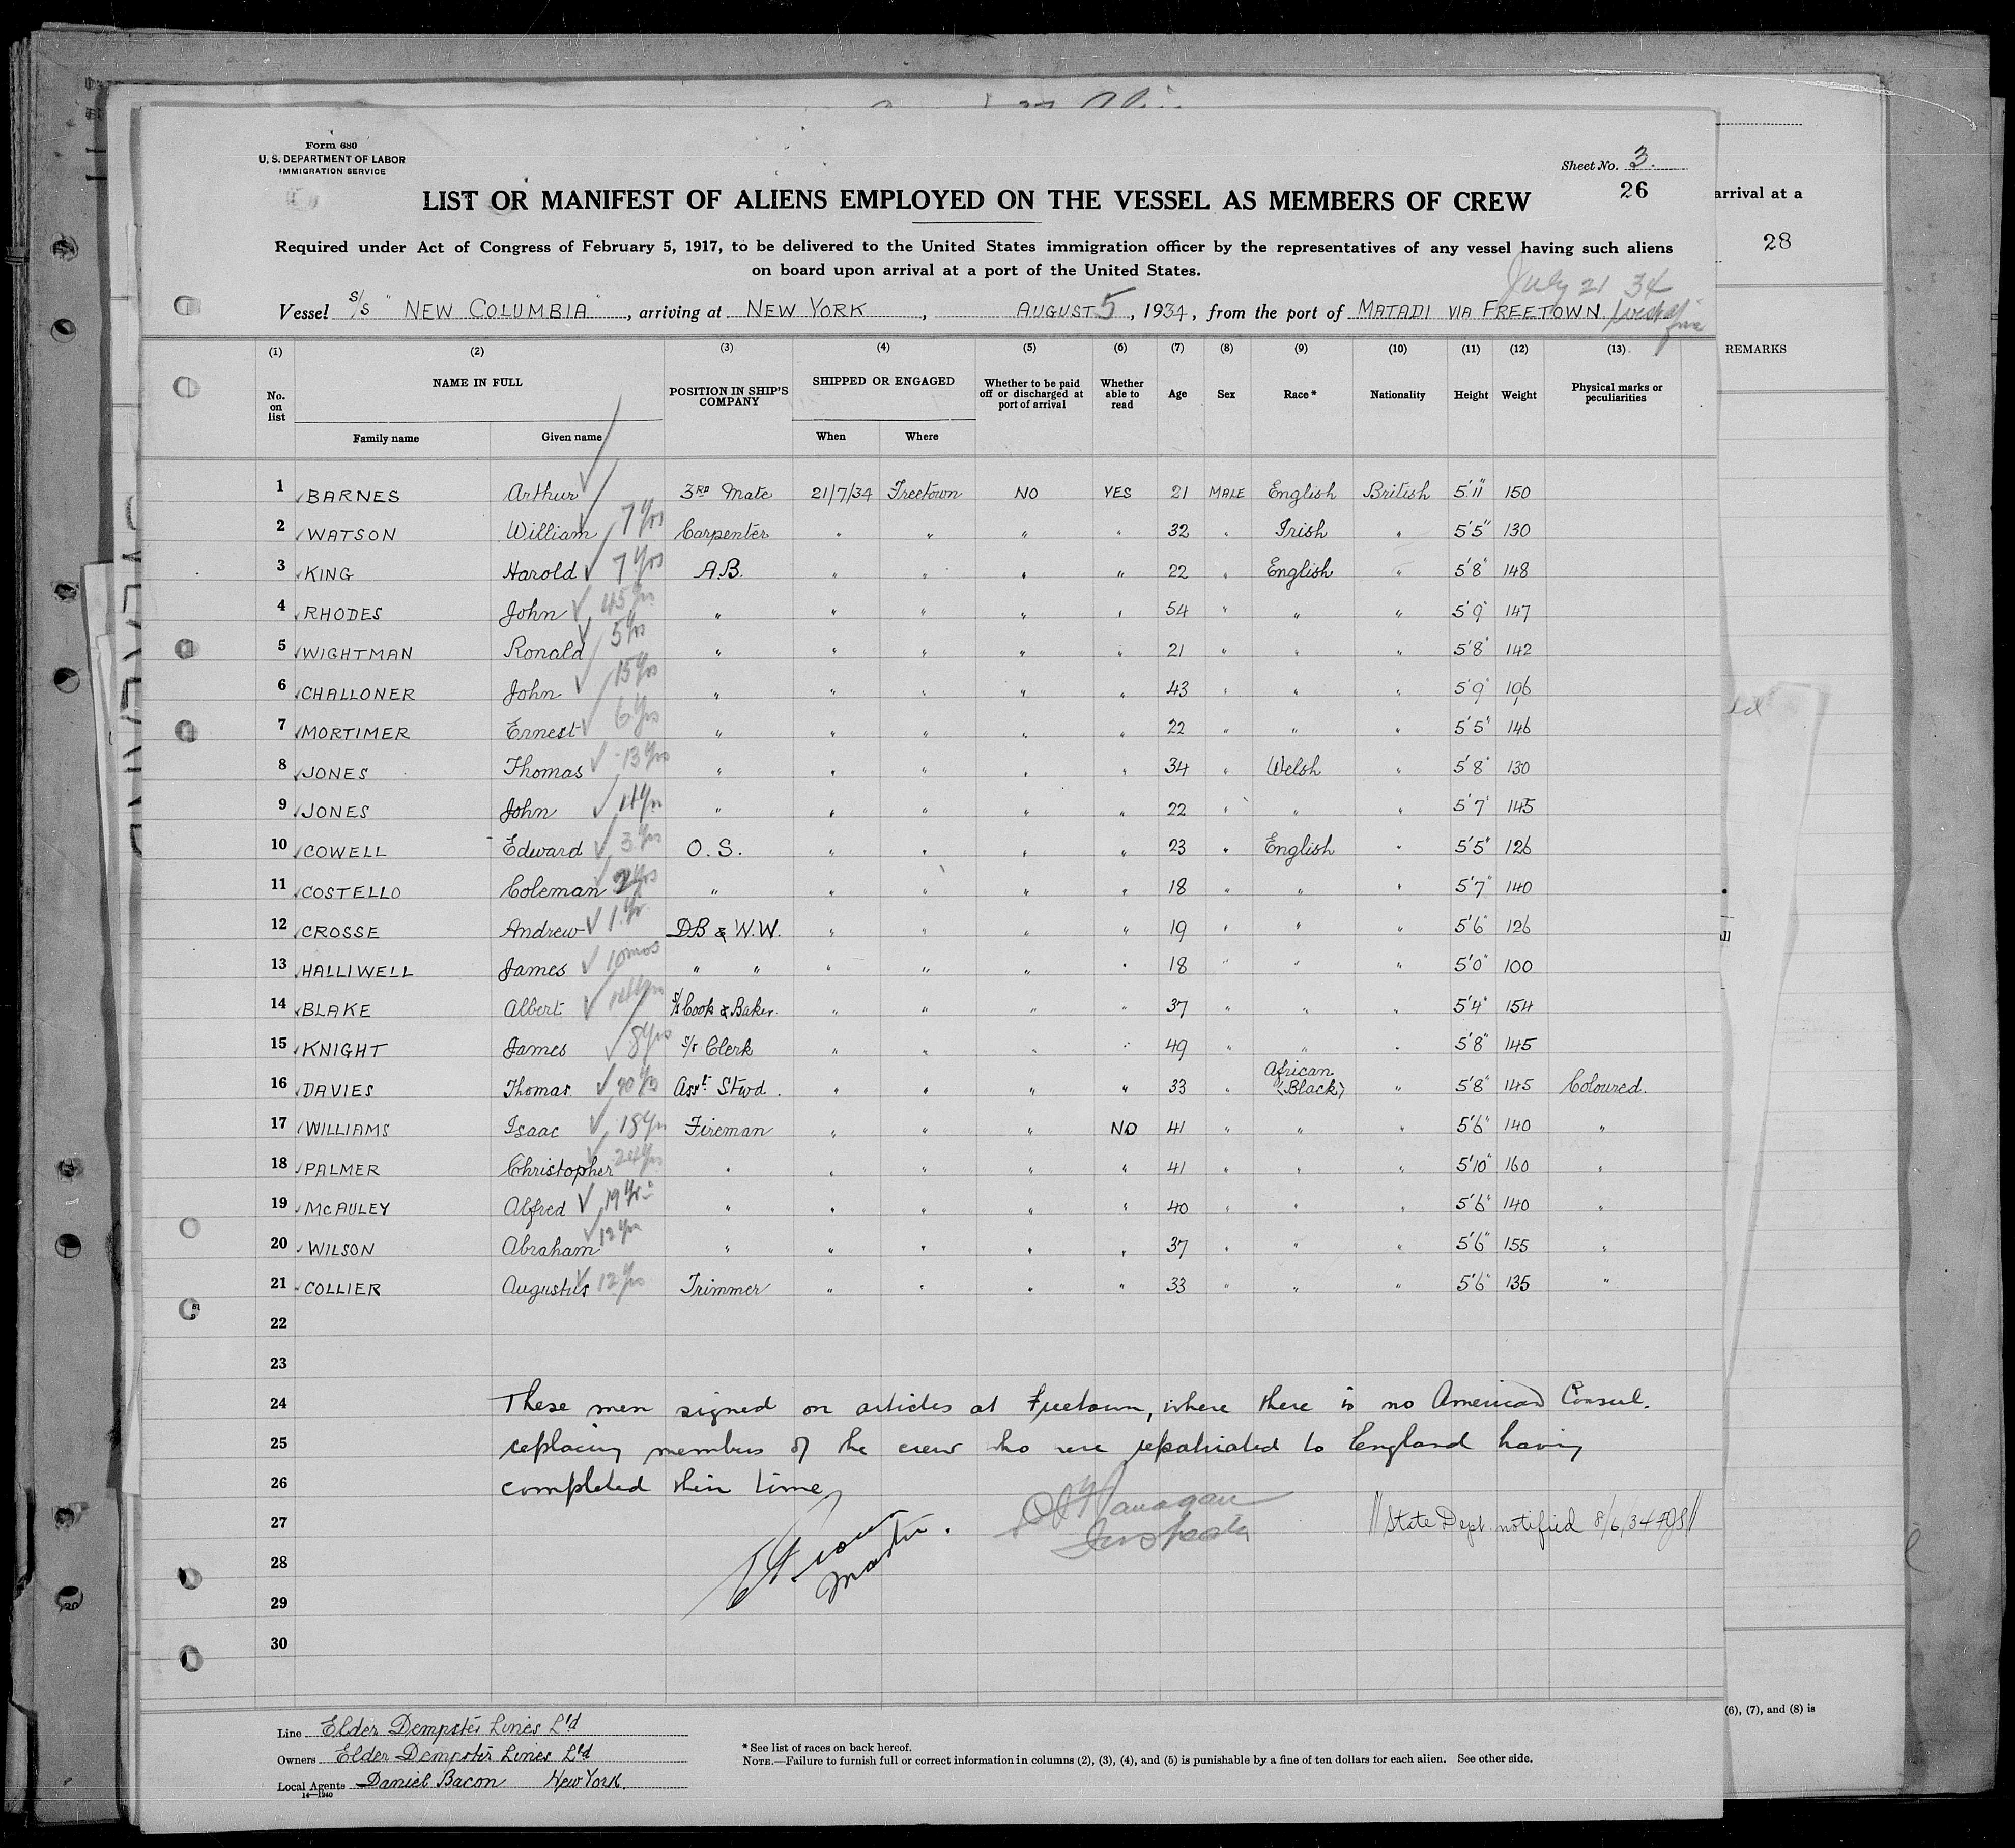 Form 680
U. S. DEPARTMENT OF LABOR
IMMIGRATION SERVICE
Sheet No. 3.
26
LIST OR MANIFEST OF ALIENS EMPLOYED ON THE VESSEL AS MEMBERS OF CREW
arrival at a
28
Required under Act of Congress of February 5, 1917, to be delivered to the United States immigration officer by the representatives of any vessel having such aliens
on board upon arrival at a port of the United States.
July 21 34
Vessel S/S "NEW COLUMBIA", arriving at NEW YORK, AUGUST 5, 1934, from the port of MATADI VIA FREETOWN.
(1) (2) (3) (4) (5) (6) (7) (8) (9) (10) (11) (12) (13) REMARKS
No. on list NAME IN FULL POSITION IN SHIP'S COMPANY SHIPPED OR ENGAGED Whether to be paid off or discharged at port of arrival Whether able to read Age Sex Race* Nationality Height Weight Physical marks or peculiarities
Family name Given name When Where
1 BARNES Arthur 3RD Mate 21/7/34 Freetown NO YES 21 MALE English British 5'11" 150
2 WATSON William 7 yrs Carpenter " " " " 32 " Irish " 5'5" 130
3 KING Harold 7 yrs A.B. " " " " 22 " English " 5'8" 148
4 RHODES John 45 yrs " " " " " 54 " " " 5'9" 147
5 WIGHTMAN Ronald 5 yrs " " " " " 21 " " " 5'8" 142
6 CHALLONER John 15 yrs " " " " " 43 " " " 5'9" 196
7 MORTIMER Ernest 6 yrs " " " " " 22 " " " 5'5" 146
8 JONES Thomas 13 yrs " " " " " 34 " Welsh " 5'8" 130
9 JONES John " " " " " 22 " " " 5'7" 145
10 COWELL Edward 3 yrs O.S. " " " " 23 " English " 5'5" 126
11 COSTELLO Coleman 2 yrs " " " " " 18 " " " 5'7" 140
12 CROSSE Andrew 1 yr DB & W.W. " " " " 19 " " " 5'6" 126
13 HALLIWELL James 10 mos " " " " " " 18 " " " 5'0" 100
14 BLAKE Albert S/s Cook & Baker. " " " " 37 " " " 5'4" 154
15 KNIGHT James 8 yrs Clerk " " " " 49 " " " 5'8" 145
16 DAVIES Thomas. 20 yrs Asst. Stwd. " " " " 33 " African (Black) " 5'8" 145 Coloured.
17 WILLIAMS Isaac 18 yrs Fireman " " " NO 41 " " " 5'6" 140 "
18 PALMER Christopher 24 yrs " " " " " 41 " " " 5'10" 160 "
19 McAULEY Alfred 19 yrs " " " " " 40 " " " 5'6" 140 "
20 WILSON Abraham 12 yrs " " " " " 37 " " " 5'6" 155 "
21 COLLIER Augustus 12 yrs Trimmer " " " " 33 " " " 5'6" 135 "
22
23
24 These men signed on articles at Freetown, where there is no American Consul.
25 replacing members of the crew who were repatriated to England having
26 completed their time
27 Inspector State Dept notified 8/6/34
28 Master.
29
30
(6), (7), and (8) is
Line Elder Dempster Lines Ltd
Owners Elder Dempster Lines Ltd
Local Agents Daniel Bacon New York.
14—1240
* See list of races on back hereof.
NOTE.—Failure to furnish full or correct information in columns (2), (3), (4), and (5) is punishable by a fine of ten dollars for each alien. See other side.